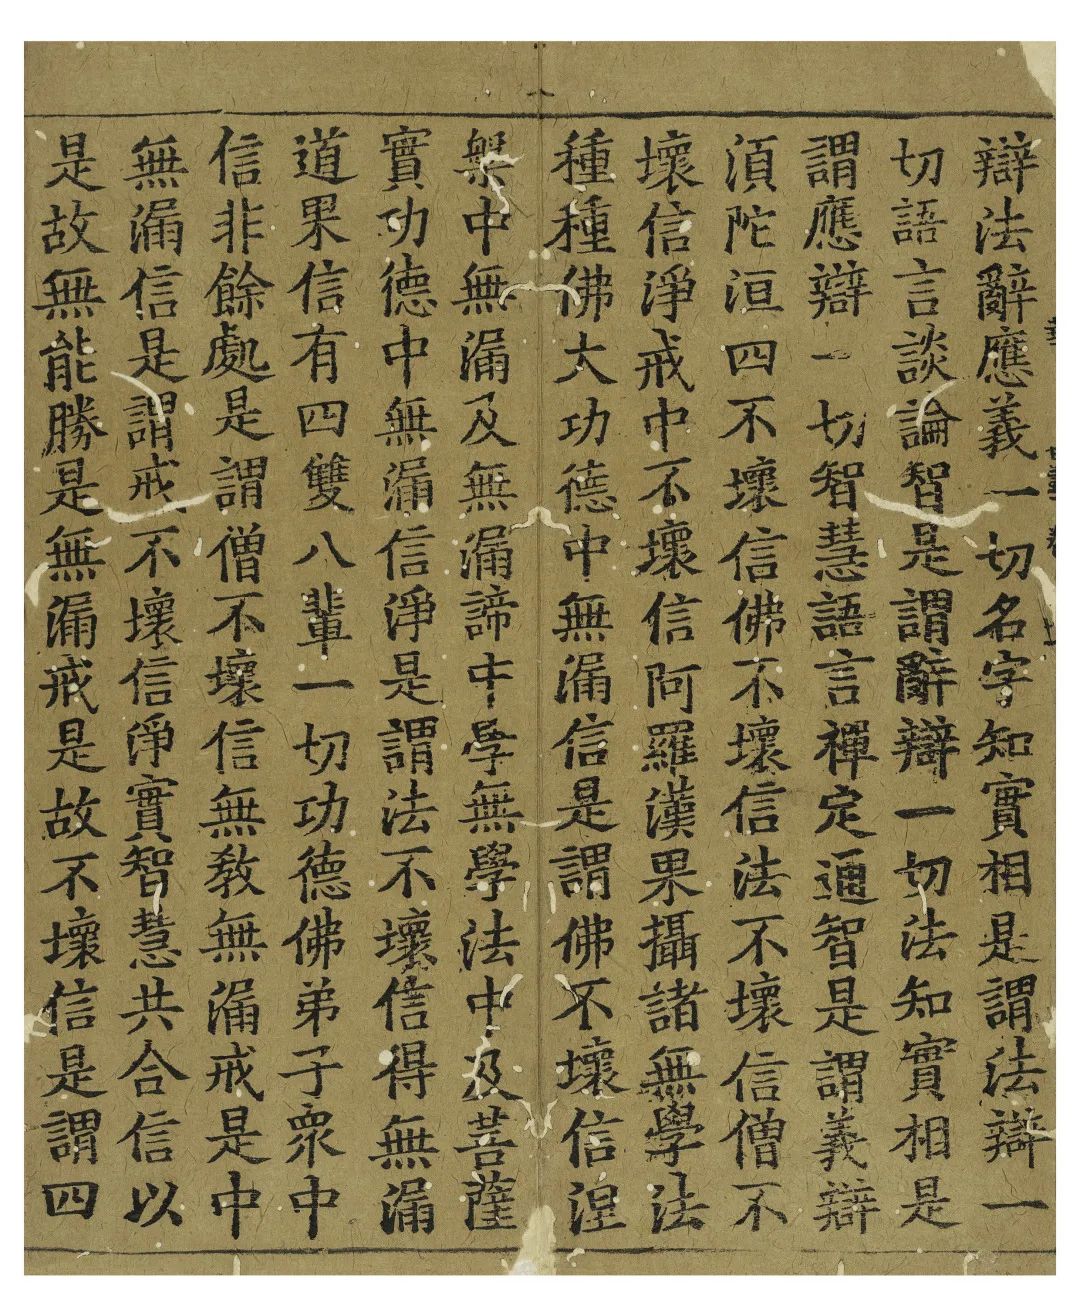 辯法辭應義一切名字知實相是謂法辯一
切語言談論智是謂辭辯一切法知實相是
謂應辯一切智慧語言禪定通智是謂義辯
湏陀洹四不壞信佛不壞信法不壞信僧不
壞信淨戒中不壞信阿羅漢果攝諸無學法
種種佛大功德中無漏信是謂佛不壞信涅
槃中無漏及無漏諦中學無學法中及菩薩
實功德中無漏信淨是謂法不壞信得無漏
道果信有四雙八輩一切功德佛弟子衆中
信非餘處是謂僧不壞信無教無漏戒是中
無漏信是謂戒不壞信淨實智慧共合信以
是故無能勝是無漏戒是故不壞信是謂四